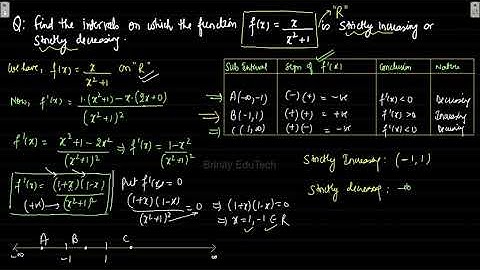 Q: Find the intervals on which the function f(x) = x/(x²+1) is Strictly Increasing or
"R"
Strictly decreasing.
We have, f(x) = x/(x²+1) on "R"
Now, f'(x) = (1·(x²+1) - x·(2x+0))/(x²+1)²
f'(x) = (x²+1-2x²)/(x²+1)² ⇒ f'(x) = (1-x²)/(x²+1)²
f'(x) = (1+x)(1-x)/(x²+1)²
(+ve)
Put f'(x) = 0
(1+x)(1-x)/(x²+1)² = 0 ⇒ (1+x)(1-x) = 0
⇒ x = 1, -1 ∈ R
-∞ A -1 B 1 C ∞
Sub Interval Sign of f'(x) Conclusion Nature
⇒ A(-∞,-1) (-)(+) = -ve f'<0 Decreasing
⇒ B(-1,1) (+)(+) = +ve f'>0 Increasing
⇒ C(1,∞) (+)(-) = -ve f'<0 Decreasing
Strictly Increasing: (-1,1)
Strictly decreasing: -∞
Brinity EduTech